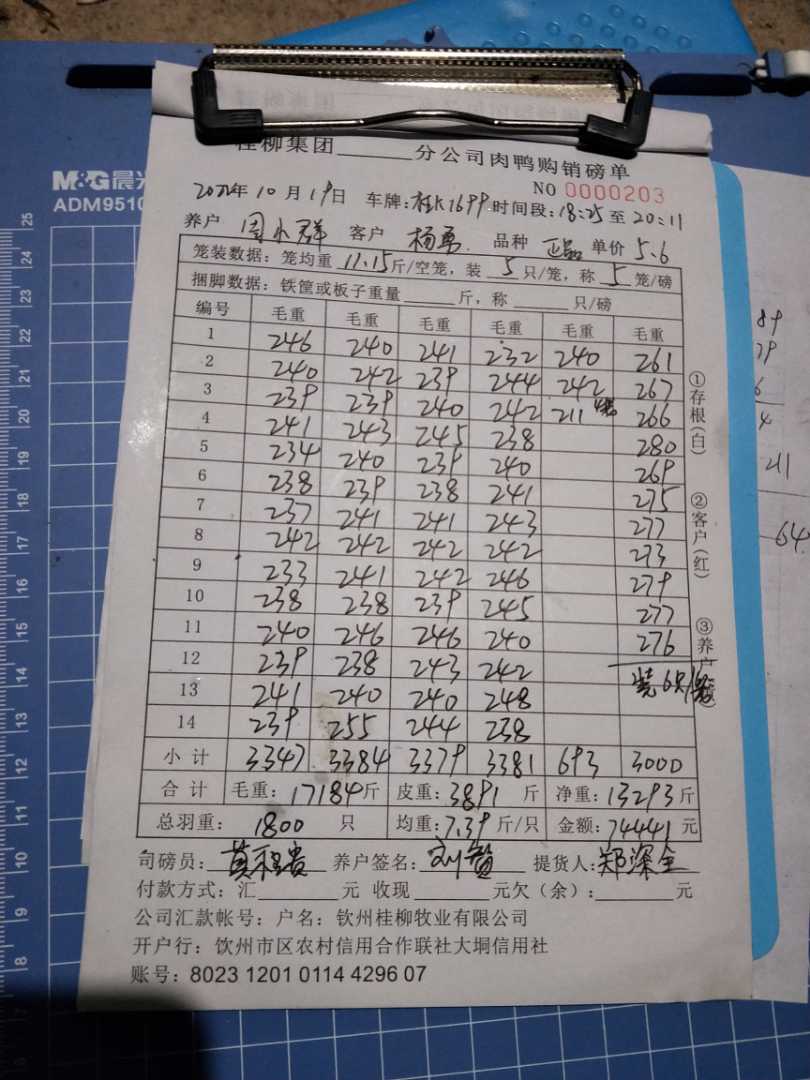 M&G 晨光
ADM9510
桂柳集团______分公司肉鸭购销磅单
NO 0000203
2022年10月19日 车牌:桂K1699 时间段:18:25至20:11
养户 周小群 客户 杨勇 品种 正品 单价 5.6
笼装数据:笼均重 11.15斤/空笼,装 5 只/笼,称 5 笼/磅
捆脚数据:铁筐或板子重量______斤,称______只/磅
编号 毛重 毛重 毛重 毛重 毛重 毛重
1 246 240 241 232 240 261
2 240 242 239 244 242 267
3 239 239 240 242 211 4笼 266
4 241 243 245 238 280
5 234 240 239 240 269
6 238 239 238 241 275
7 237 241 241 243 277
8 242 242 242 242 273
9 233 241 242 246 279
10 238 238 239 245 277
11 240 246 246 240 276
12 239 238 243 242 装6只/笼
13 241 240 240 248
14 239 255 244 238
小计 3347 3384 3379 3381 693 3000
合计 毛重:17184斤 皮重:3891斤 净重:13293斤
总羽重: 1800 只 均重:7.39斤/只 金额:74441元
司磅员: 养户签名: 提货人:郑深全
付款方式:汇______元 收现______元欠(余):______元
公司汇款帐号:户名:钦州桂柳牧业有限公司
开户行:饮州市区农村信用合作联社大垌信用社
账号:8023 1201 0114 4296 07
①存根(白)
②客户(红)
③养户
89
79
6
4
211
64
25
24
23
22
21
20
19
18
17
16
15
14
13
12
11
10
9
8